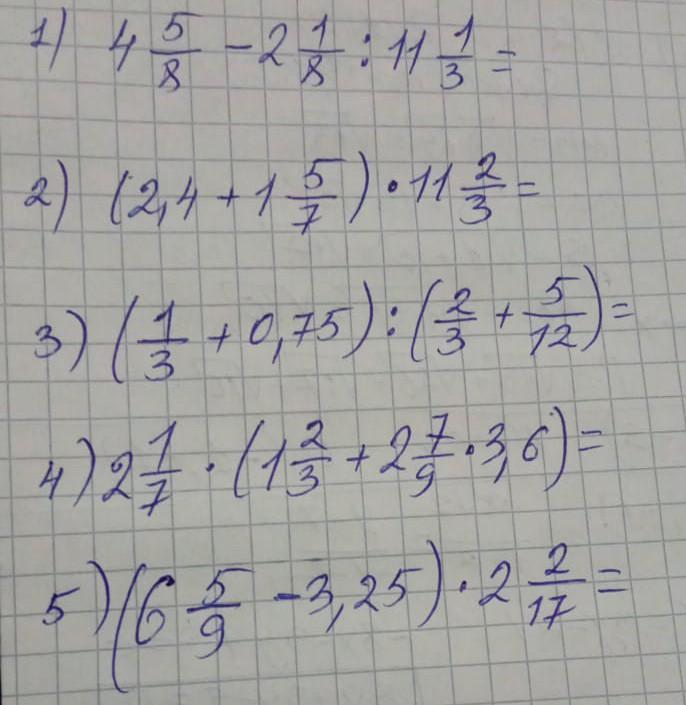 1) 4 5/8 - 2 1/8 : 11 1/3 =
2) (2,4 + 1 5/7) · 11 2/3 =
3) (1/3 + 0,75) : (2/3 + 5/12) =
4) 2 1/7 · (1 2/3 + 2 7/9 · 3,6) =
5) (6 5/9 - 3,25) · 2 2/17 =